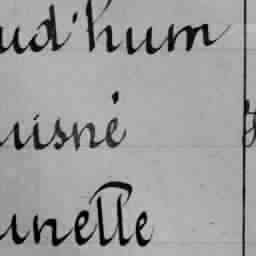 ud'hum
uisné
unette